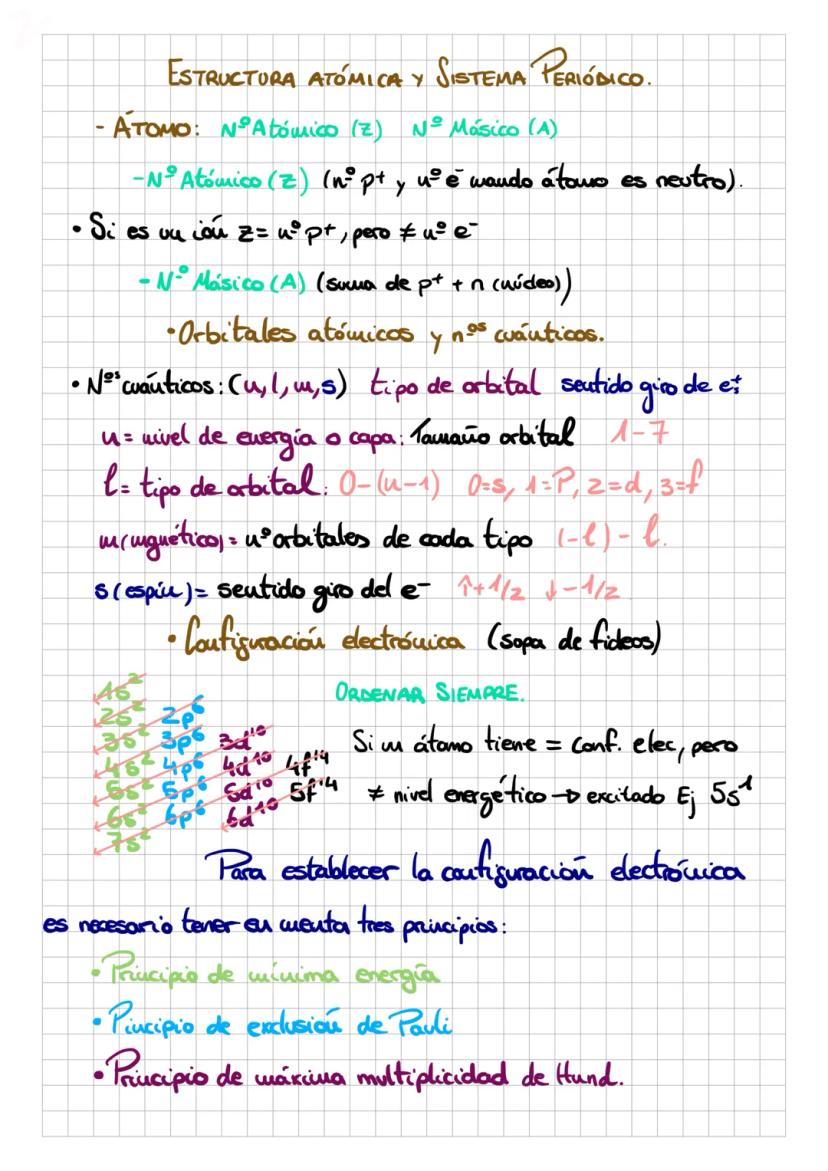 ESTRUCTURA ATÓMICA Y SISTEMA PERIÓDICO.
- ÁTOMO: Nº Atómico (Z) Nº Másico (A)
- Nº Atómico (Z) (nº p+ y nº e- cuando átomo es neutro).
• Si es un ión Z = nº p+, pero ≠ nº e-
- Nº Másico (A) (suma de p+ + n (núcleo))
• Orbitales atómicos y nºs cuánticos.
• Nºs cuánticos: (n, l, m, s) tipo de orbital sentido giro de e-:
n = nivel de energía o capa: Tamaño orbital 1-7
l = tipo de orbital: 0-(n-1) 0=s, 1=P, 2=d, 3=f
m (magnético) = nº orbitales de cada tipo (-l) - l.
s (espín) = sentido giro del e- ↑+1/2 ↓-1/2
• Configuración electrónica (sopa de fideos)
1s² ORDENAR SIEMPRE.
2s² 2p⁶
3s² 3p⁶ 3d¹⁰ Si un átomo tiene = conf. elec, pero
4s² 4p⁶ 4d¹⁰ 4f¹⁴
5s² 5p⁶ 5d¹⁰ 5f¹⁴ ≠ nivel energético → excitado Ej 5s¹
6s² 6p⁶ 6d¹⁰
7s²
Para establecer la configuración electrónica
es necesario tener en cuenta tres principios:
• Principio de mínima energía
• Pincipio de exclusión de Pauli
• Principio de máxima multiplicidad de Hund.